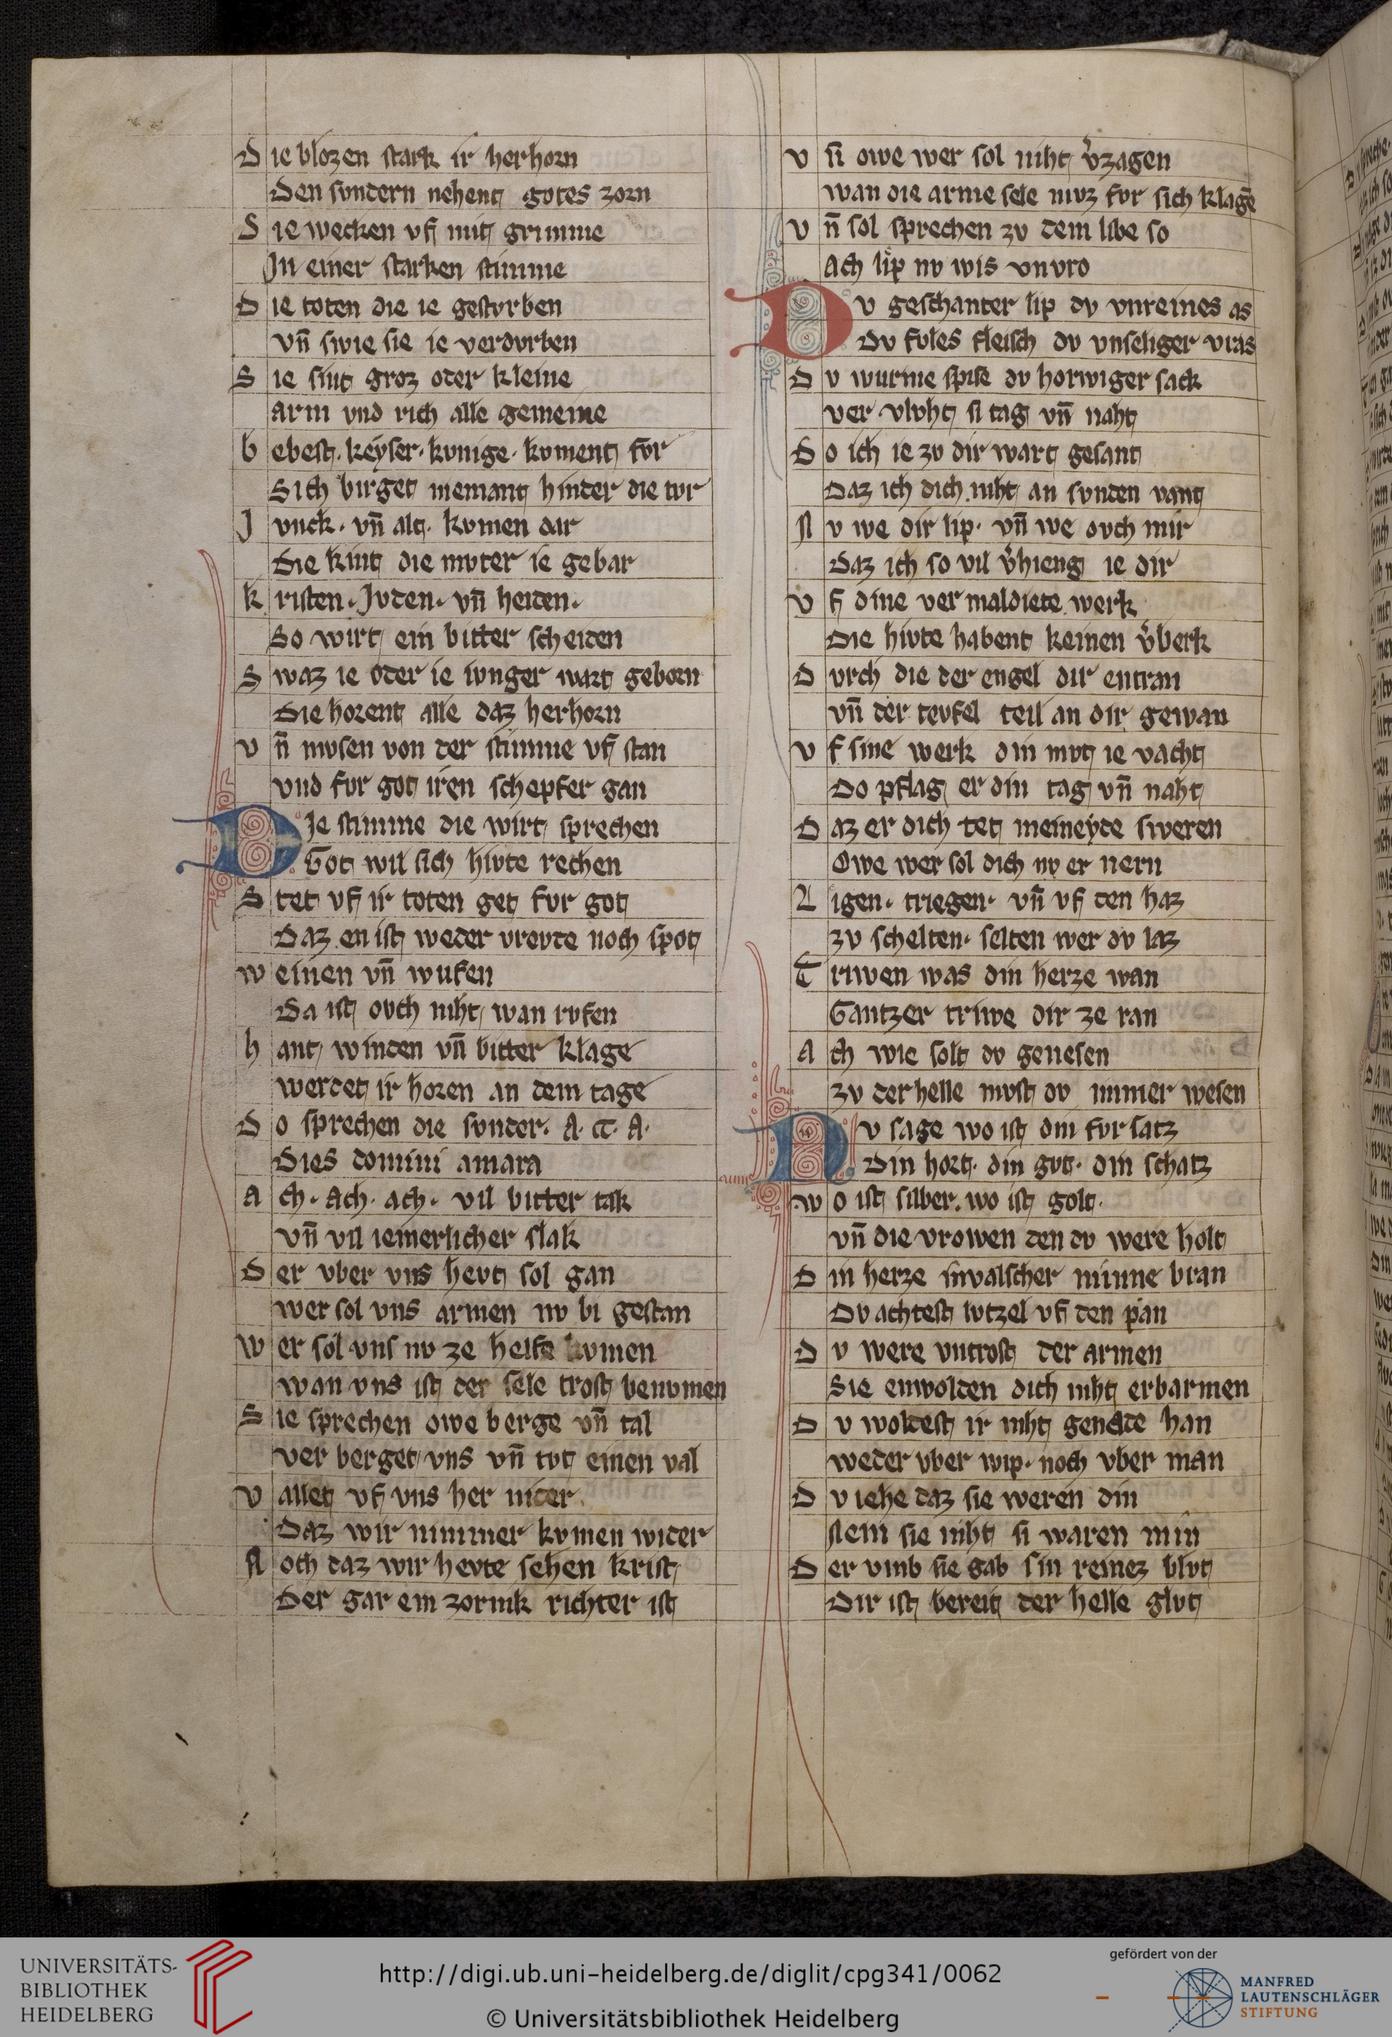 Die blozen stark ir herhorn
Den svndern nehent gotes zorn
Sie wecken vf mit grimme
In einer starken stimme
Die toten die ie gestvrben
Vn̄ swie sie ie verdvrben
Sie sint groz oder kleine
Arm vnd rich alle gemeine
Bebest. keyser. kvnige. kvment fvr
Sich birget niemant hinder die tvr
Jvnck. vn̄ alt. kvmen dar
Die kint die mvter ie gebar
Kristen. Jvden. vn̄ heiden.
So wirt ein bitter scheiden
Swaz ie oder ie ivnger wart geborn
Die horent alle daz herhorn
Vn̄ mvsen von der stimme vf stan
Vnd fvr got iren schepfer gan
Die stimme die wirt sprechen
Got wil sich hivte rechen
Stet vf ir toten get fvr got
Daz en ist weder vrevde noch spot
Weinen vn̄ wufen
Da ist ovch niht wan rvfen
Hant winden vn̄ bitter klage
Werdet ir horen an dem tage
Do sprechen die svnder. A. A. A.
Dies domini amara
Ach. ach. ach. vil bitter tak
Vn̄ vil iemerlicher slak
Der vber vns hevt sol gan
Wer sol vns armen nv bi gestan
Wer sol vns nv ze helfe kvmen
Wan vns ist der sele trost benvmen
Sie sprechen owe berge vn̄ tal
Ver berget vns vn̄ tvt einen val
Vallet vf vns her nider.
Daz wir nimmer kvmen wider
Noch daz wir hevte sehen krist
Der gar ein zornik richter ist
Vfi owe wer sol niht v̓zagen
Wan die arme sele mvz fvr sich klagē
Vn̄ sol sprechen zv dem libe so
Ach lip nv wis vnvro
Dv geschanter lip dv vnreines as
Dv fvles fleisch dv vnseliger vras
Dv wurme spise dv horwiger sack
Ver vlvht si tag vn̄ naht
Do ich ie zv dir wart gesant
Daz ich dich niht an svnden vant
Nv we dir lip. vn̄ we ovch mir
Daz ich so vil v̓hieng ie dir
Vf dine ver maldiete werk
Die hivte habent keinen v̓berk
Dvrch die der engel dir entran
Vn̄ der tevfel teil an dir gewan
Vf sine werk din mvt ie vacht
Do pflag er din tag vn̄ naht
Daz er dich tet meineyde sweren
Owe wer sol dich nv er nern
Ligen. triegen. vn̄ vf den haz
Zv schelten. selten wer dv laz
Triwen was din herze wan
Gantzer triwe dir ze ran
Ach wie solt dv genesen
Zv der helle mvst dv immer wesen
Nv sage wo ist din fvrsatz
Din hort. din gvt. din schatz
Wo ist silber. wo ist golt.
Vn̄ die vrowen den dv were holt
Din herze in valscher minne bran
Dv achtest lvtzel vf den pan
Dv were vntrost der armen
Sie enwolden dich niht erbarmen
Dv woldest ir niht genade han
Weder vber wip. noch vber man
Dv iehe daz sie weren din
Nein sie niht si waren min
Der vmb sie gab sin reinez blvt
Dir ist bereit der helle glvt
UNIVERSITÄTS-
BIBLIOTHEK
HEIDELBERG
http://digi.ub.uni-heidelberg.de/diglit/cpg341/0062
© Universitätsbibliothek Heidelberg
gefördert von der
MANFRED
LAUTENSCHLÄGER
STIFTUNG